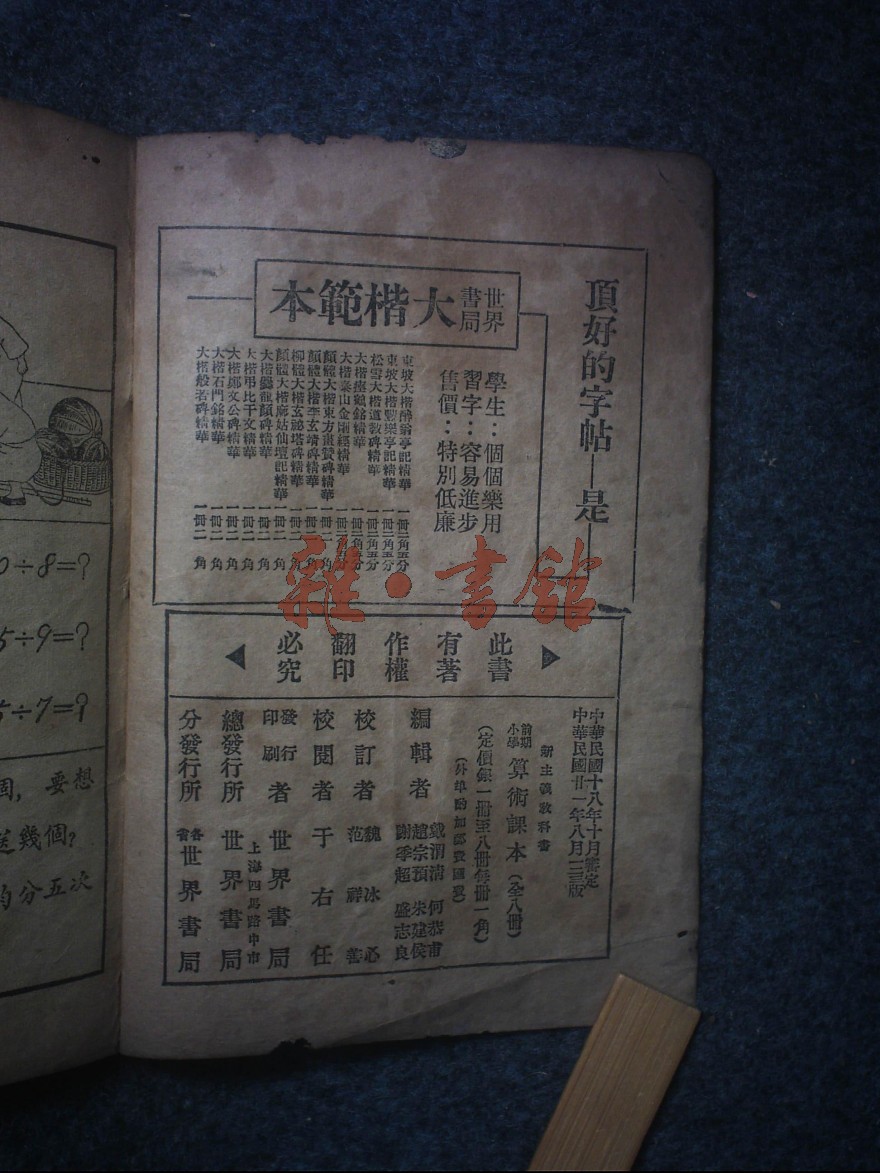 頂好的字帖—是
世界書局
大楷範本
學生：個個樂用
習字：容易進步
售價：特別低廉
東坡大楷醉翁亭記精華 一冊二角五分
東坡大楷豐樂亭記精華 一冊二角五分
松雪大楷道教碑精華 一冊二角五分
大楷瘞鶴銘精華 一冊二角五分
大楷泰山金剛經精華 一冊二角五分
顏體大楷東方畫贊碑精華 一冊二角
顏體大楷李玄靖碑精華 一冊二角
柳體大楷玄祕塔碑精華 一冊二角
顏體大楷麻姑仙壇記精華 一冊二角
大楷爨龍顏碑精華 一冊二角
大楷弔比干文精華 一冊二角
大楷鄭文公碑精華 一冊二角
大楷石門銘精華 一冊二角
大楷般若碑精華 一冊二角
雜·書館
此書有著作權翻印必究
中華民國十八年十月審定
中華民國廿一年八月一三版
新主義教科書
前期小學 算術課本（全八冊）
（定價銀一冊至八冊每冊一角）
（外埠酌加郵費匯費）
編輯者 戴渭清 何恭甫
趙宗預 朱建侯
謝季超 盛志良
校訂者 魏冰心
范祥善
校閱者 于右任
發行印刷者 世界書局
上海四馬路中市
總發行所 世界書局
分發行所 各省 世界書局
0÷8=?
5÷9=?
5÷7=?
個，要想
送幾個？
均分五次